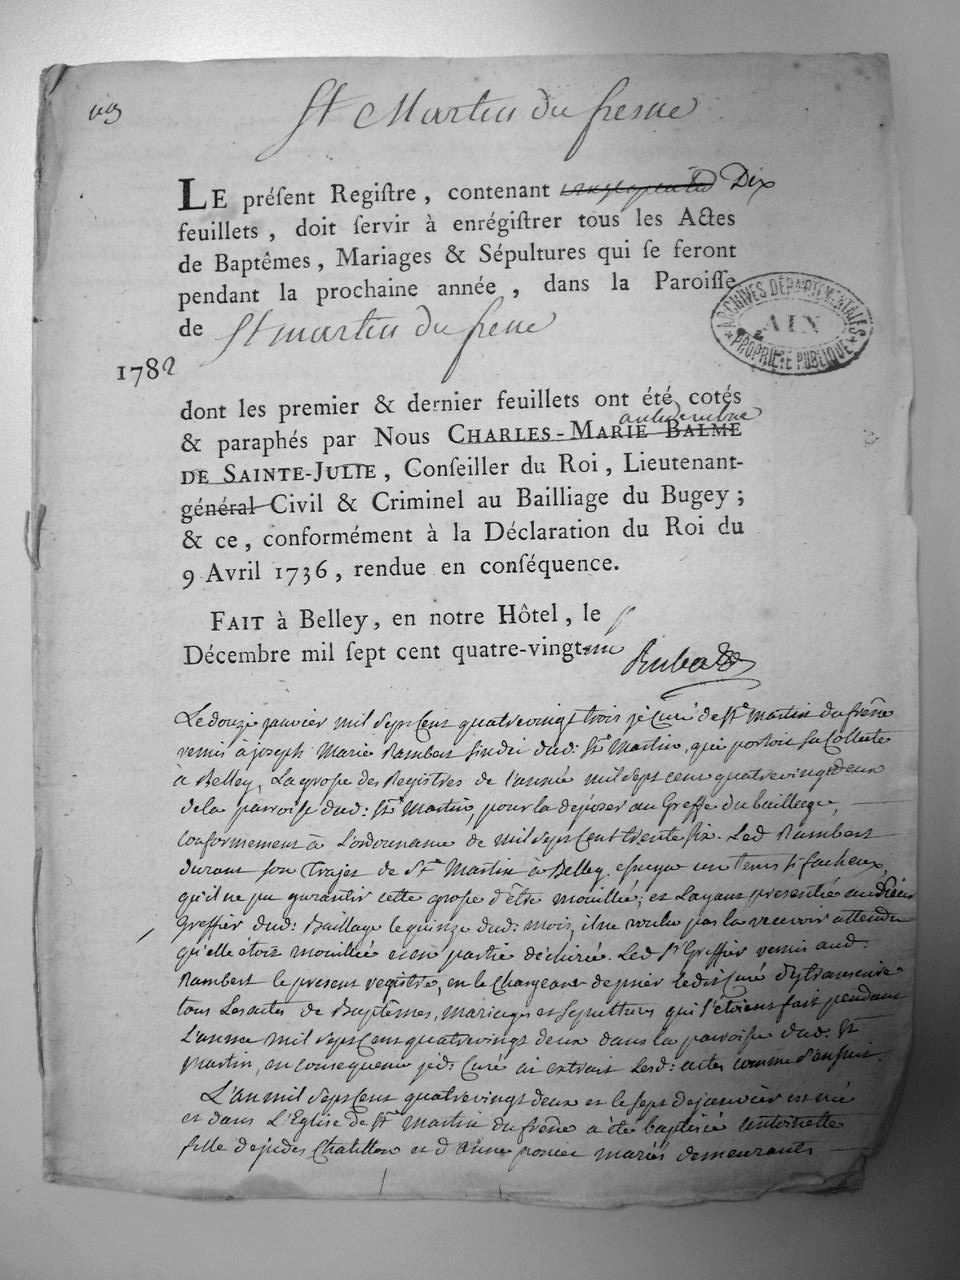 St Martin du fresne
LE préſent Regiſtre, contenant Dix
feuillets, doit ſervir à enrégiſtrer tous les Actes
de Baptêmes, Mariages & Sépultures qui ſe feront
pendant la prochaine année, dans la Paroiſſe
de St martin du frene
ARCHIVES DÉPARTEMENTALES
AIN
PROPRIÉTÉ PUBLIQUE
1782
dont les premier & dernier feuillets ont été cotés
& paraphés par Nous CHARLES-MARIE BALME
DE SAINTE-JULIE, Conſeiller du Roi, Lieutenant-
général Civil & Criminel au Bailliage du Bugey;
& ce, conformément à la Déclaration du Roi du
9 Avril 1736, rendue en conſéquence.
FAIT à Belley, en notre Hôtel, le
Décembre mil ſept cent quatre-vingt
Le douze janvier mil sept Cent quatrevingt trois je Curé de St martin du frêne
remis à joseph Marie Rambert sindic dud: St Martin, qui portoit sa Collecte
à Belley, La grosse des Registres de l'année mil sept cent quatrevingt deux
de la parroisse dud: St Martin, pour la déposer au Greffe du bailliage,
conformement à L'ordonnance de mil sept Cent trente six. Led Rambert
durant son trajet de St Martin à Belley essuya un tems si facheux,
qu'il ne pu garantir cette grosse d'être mouillée; et Layant presentée au
Greffier dud: Baillage le quinze dud: mois, il ne voulu pas la recevoir attendu
qu'elle étoit mouillée et en partie déchirée. Led Sr Greffier remis aud:
Rambert le present registre, en le Chargeant de prier ledit Curé d'y transcrire
tous Les actes de Baptêmes, mariages et sepultures qui s'étoient fait pendant
L'année mil sept Cent quatrevingt deux dans la paroisse dud. St
Martin, en consequence jed: Curé ai extrait Lesd: actes comme s'ensuit.
L'an mil sept Cent quatrevingt deux et le sept de janvier est née
et dans L'Eglise de St martin du frêne a été baptisée antoinette
fille de Chatillon et d'Anne mariés demeurants